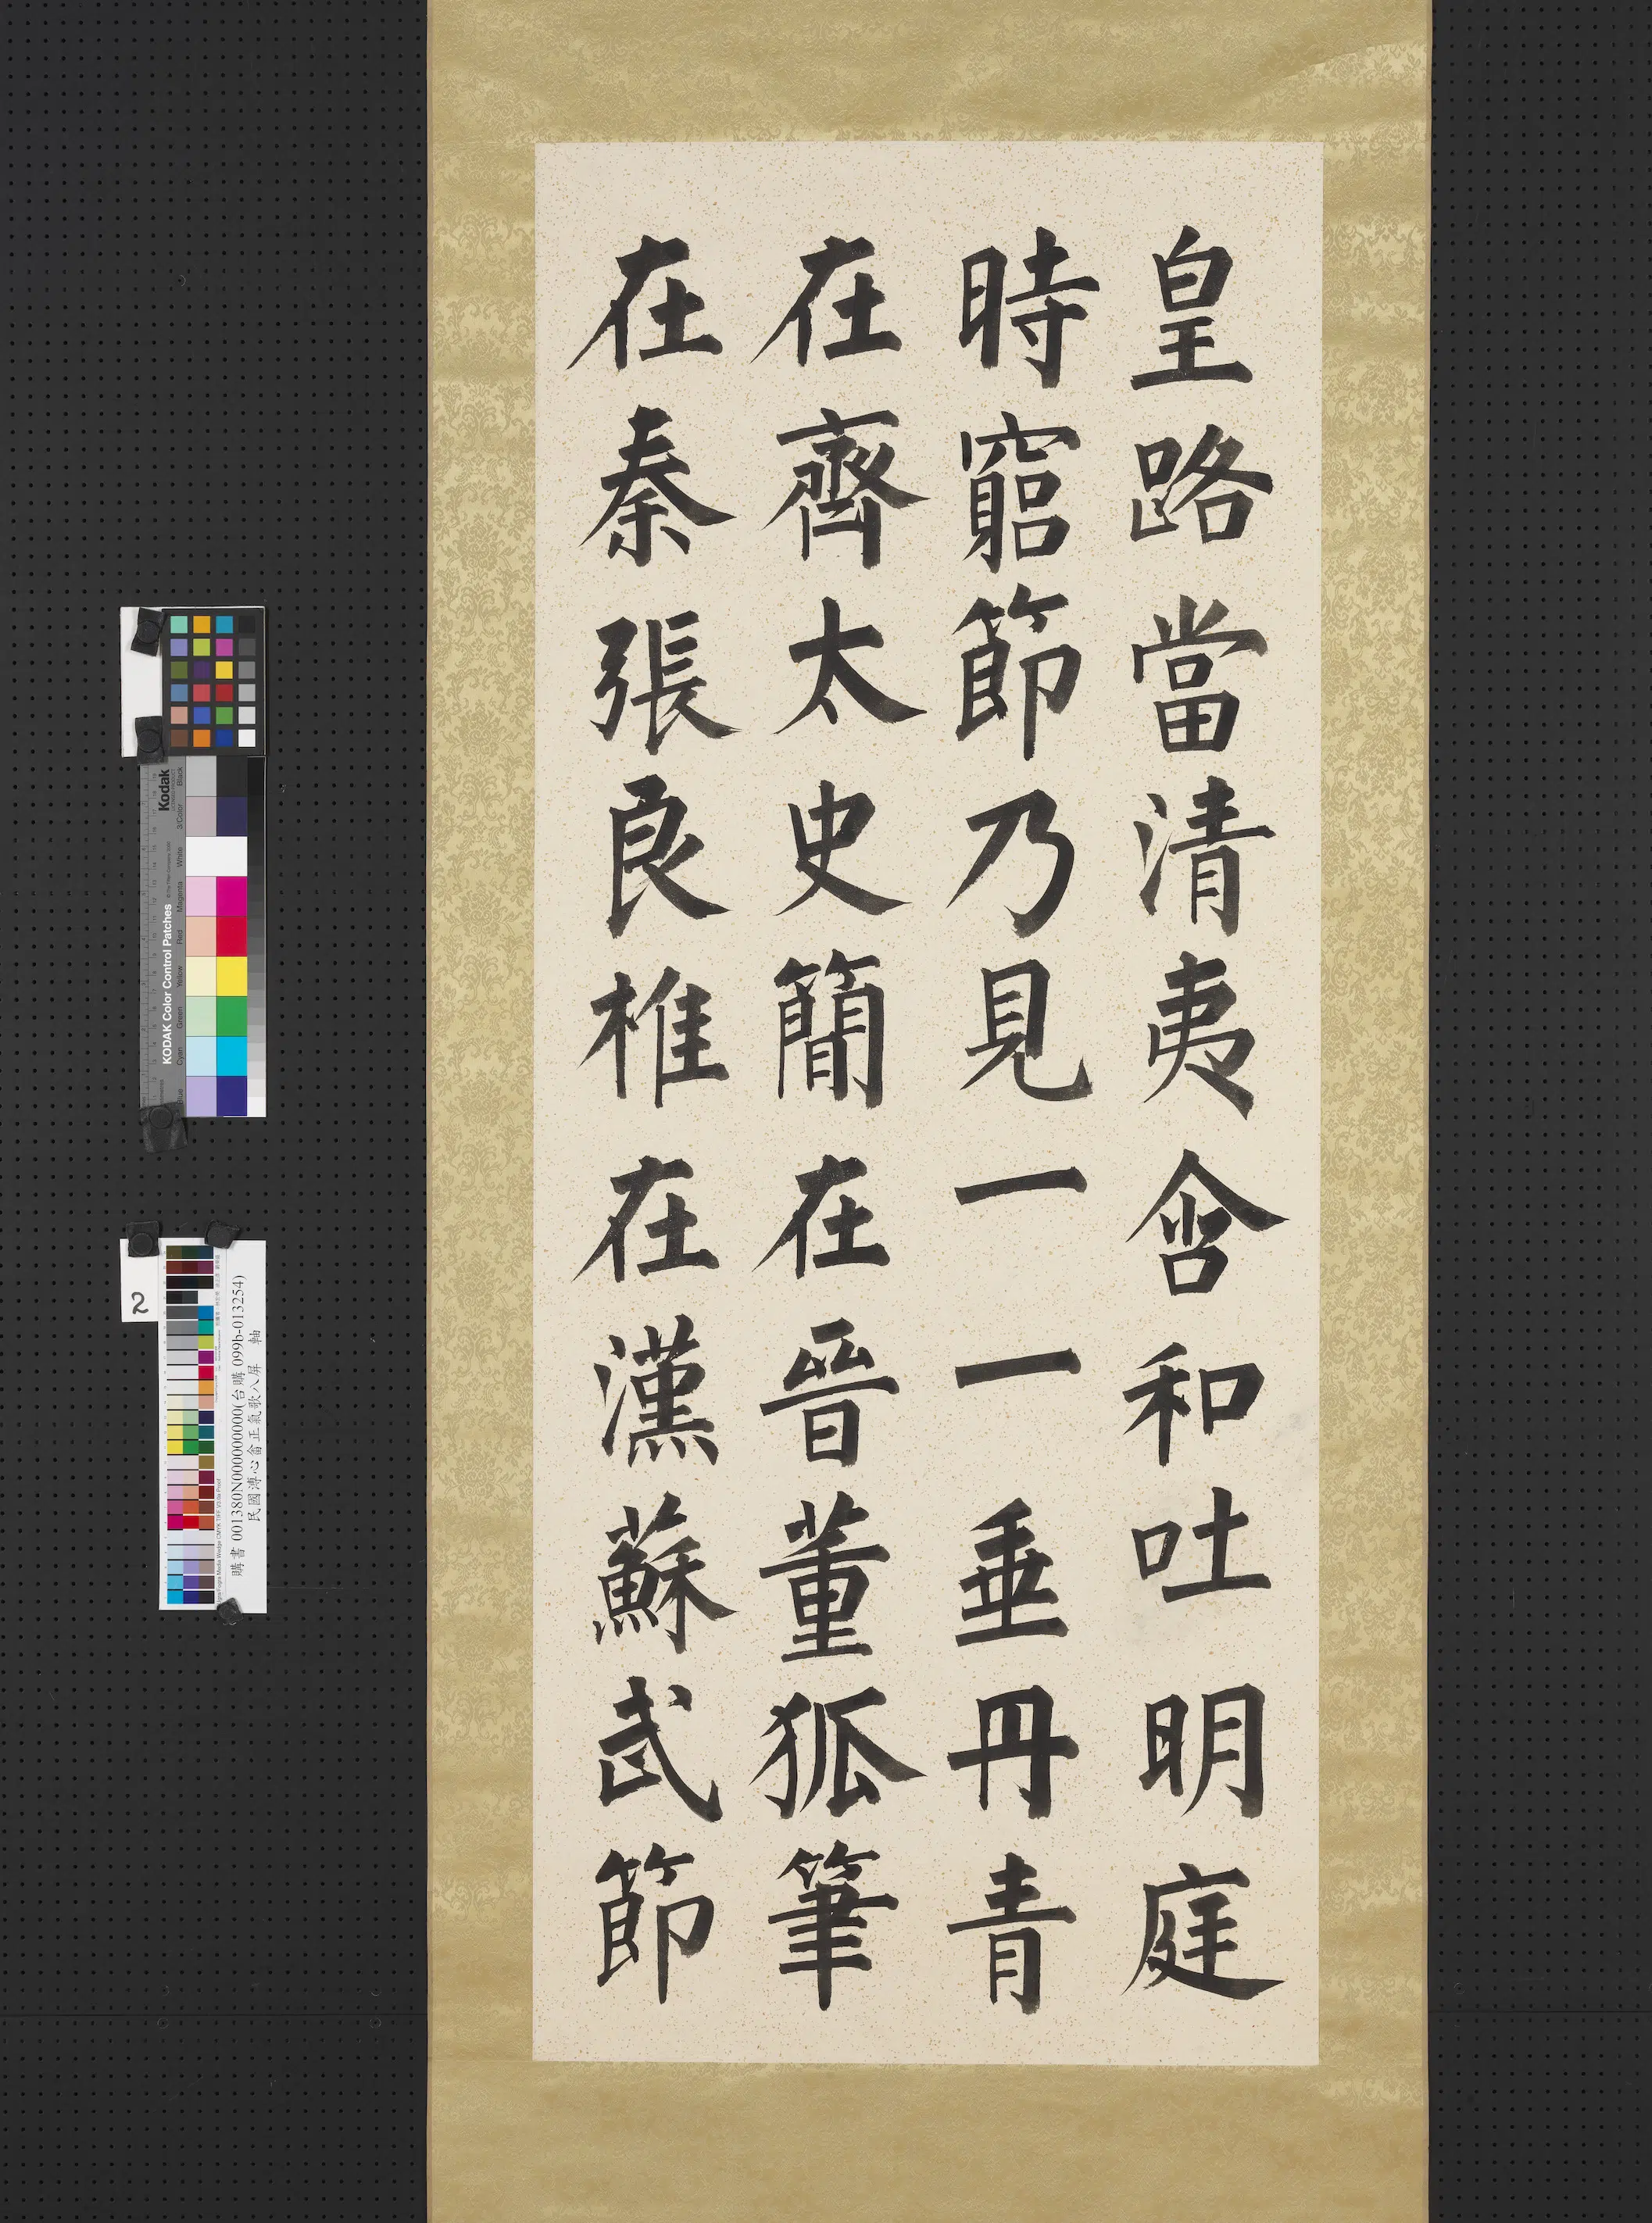 皇路當清夷含和吐明庭
時窮節乃見一一垂丹青
在齊太史簡在晉董狐筆
在秦張良椎在漢蘇武節
Kodak
KODAK Color Control Patches
Blue
Cyan
Green
Yellow
Red
Magenta
White
3/Color
Black
2
購書 001380N000000000(台購 099b-013254)
民國溥心畬正氣歌八屏 軸